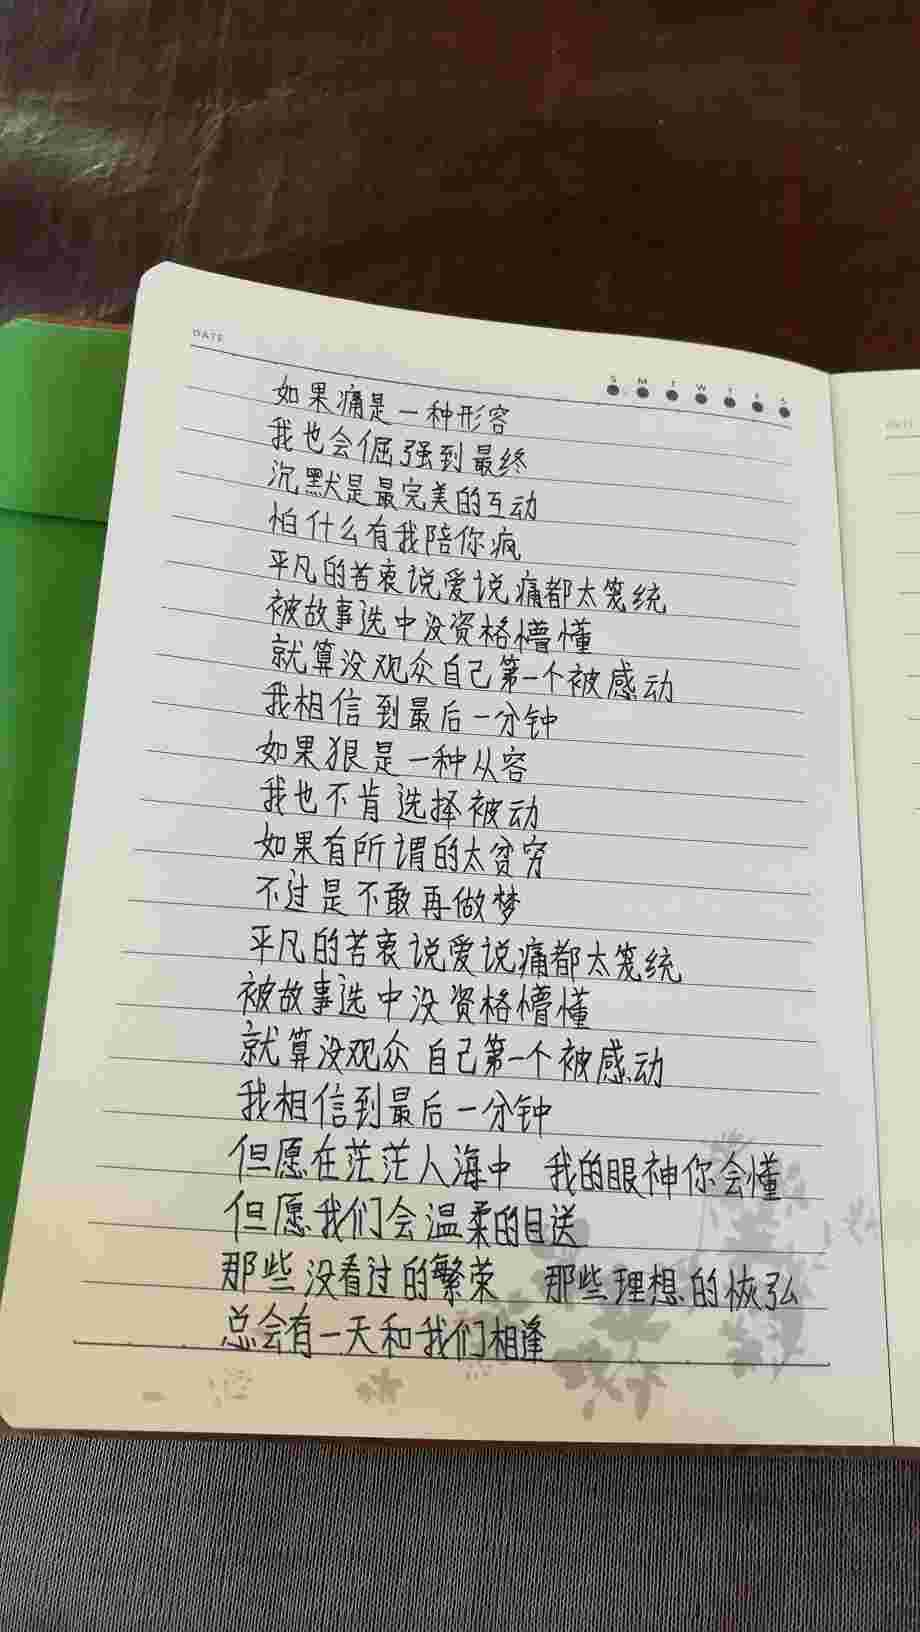 DATE
S M T W T F S
如果痛是一种形容
我也会倔强到最终
沉默是最完美的互动
怕什么有我陪你疯
平凡的苦衷说爱说痛都太笼统
被故事选中没资格懵懂
就算没观众自己第一个被感动
我相信到最后一分钟
如果狠是一种从容
我也不肯选择被动
如果有所谓的太贫穷
不过是不敢再做梦
平凡的苦衷说爱说痛都太笼统
被故事选中没资格懵懂
就算没观众自己第一个被感动
我相信到最后一分钟
但愿在茫茫人海中 我的眼神你会懂
但愿我们会温柔的目送
那些没看过的繁荣 那些理想的恢弘
总会有一天和我们相逢